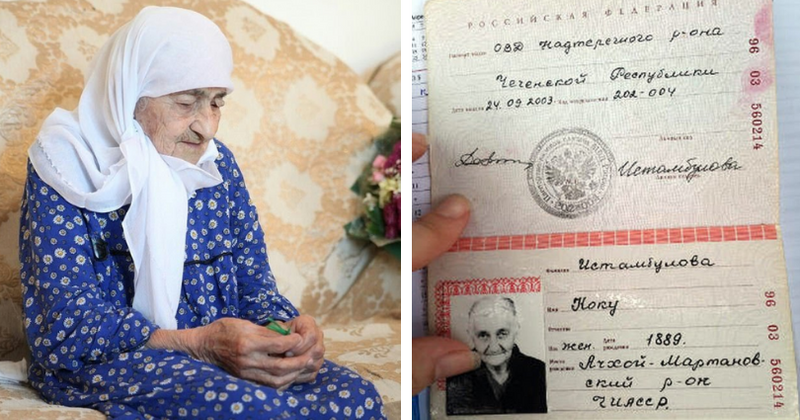 РОССИЙСКАЯ ФЕДЕРАЦИЯ
Паспорт выдан ОВД Надтеречного р-она
Чеченской Республики
Дата выдачи 24.09.2003 Код подразделения 202-004
96 03 560214
Личный код
Истамбулова
Личная подпись
Фамилия Истамбулова
Имя Коку
Отчество
Пол жен. Дата рождения 1889.
Место рождения Ачхой-Мартанов-
ский р-он
ЧИАССР.
96 03 560214